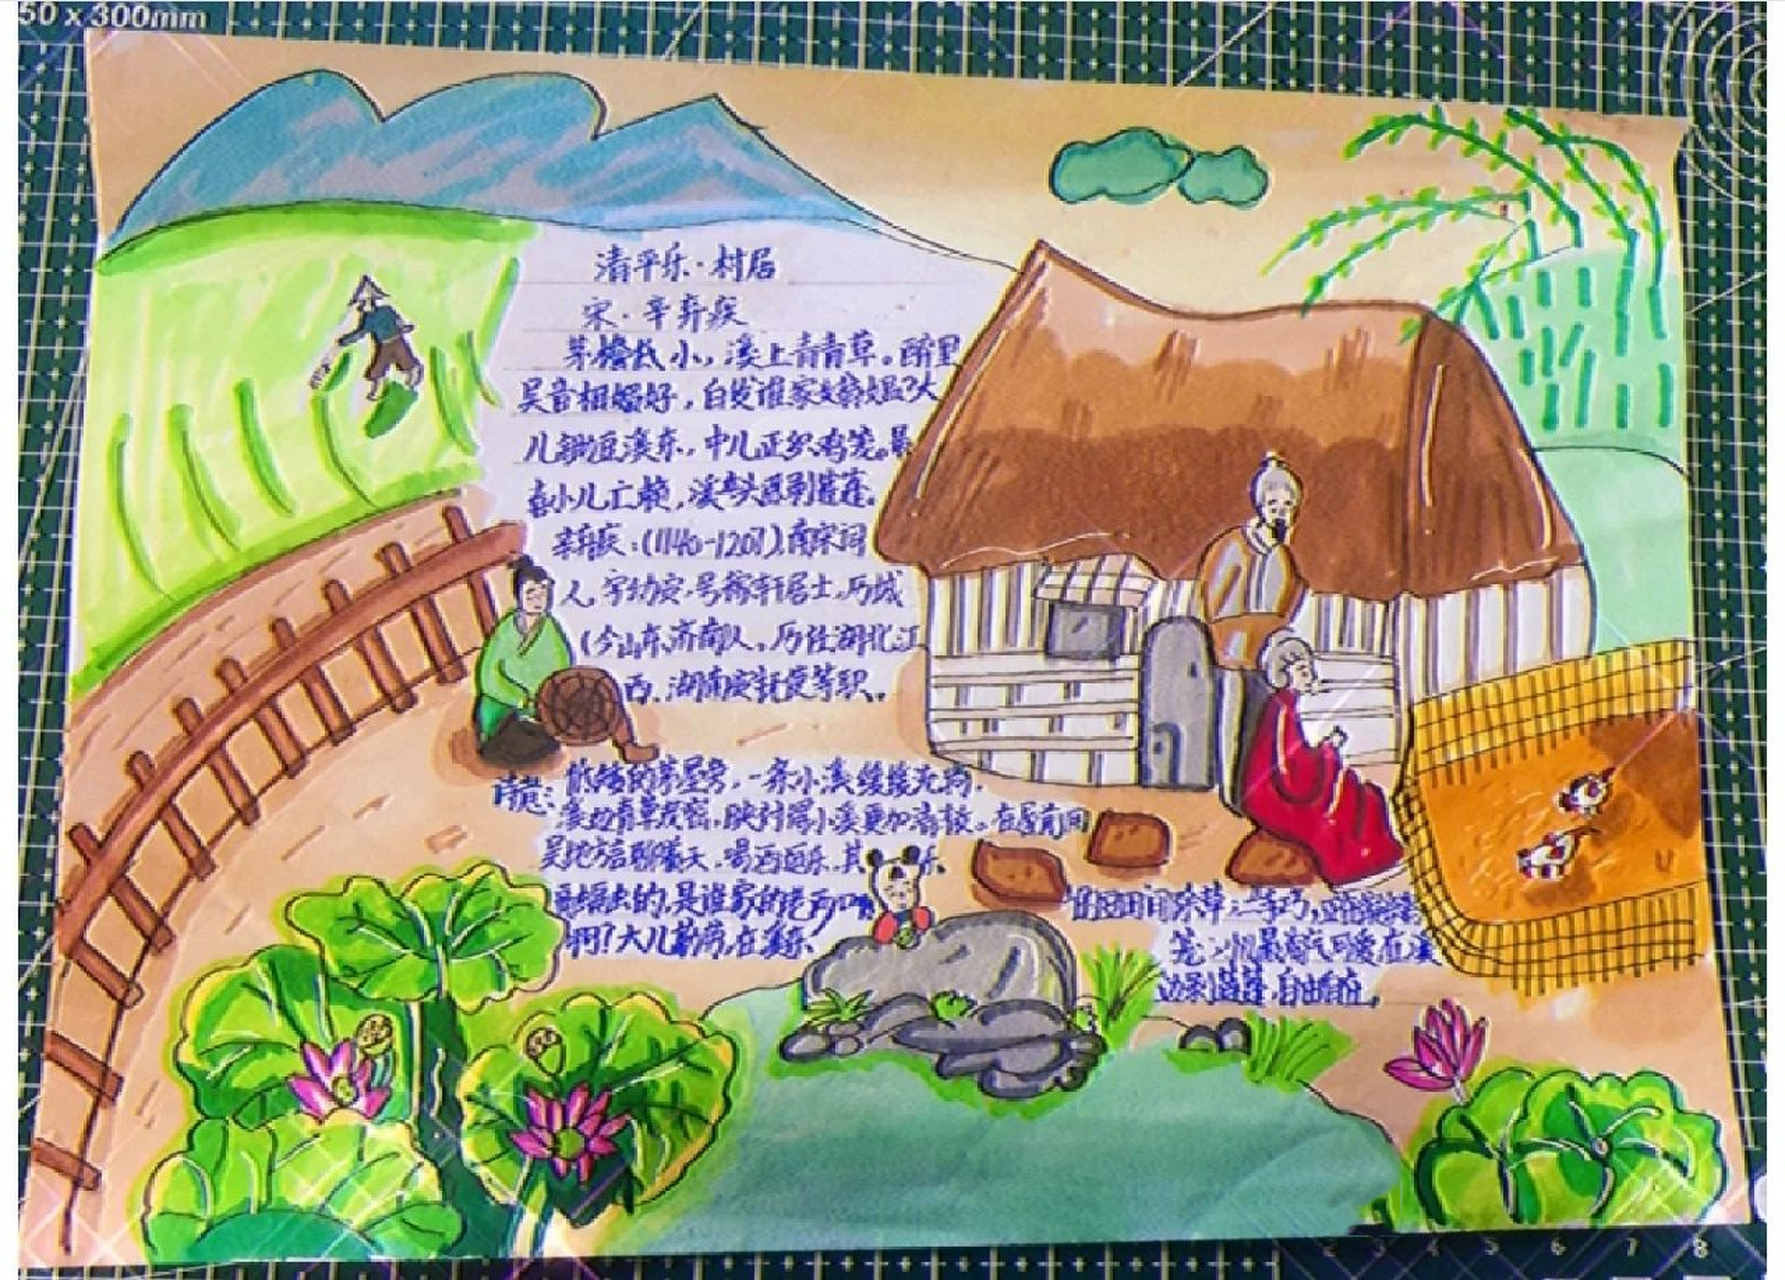 50 x 300mm
清平乐·村居
宋·辛弃疾
茅檐低小，溪上青青草。醉里
吴音相媚好，白发谁家翁媪？大
儿锄豆溪东，中儿正织鸡笼。最
喜小儿亡赖，溪头卧剥莲蓬。
辛弃疾：(1140-1207)，南宋词
人，字幼安，号稼轩居士，历城
(今山东济南人，历任湖北，江
西，湖南安抚使等职。
的茅屋旁，一条小溪缓缓流淌，
溪边青草茂密，映衬得小溪更加清
在屋前间
吴地方言聊天，喝酒逗乐，其 乐。
的，是谁家的老
啊？大儿 在溪东
在田间除草，二
笼，小 最 可爱在溪
边剥莲蓬，自由自在。
2 3 4 5 6 7 8